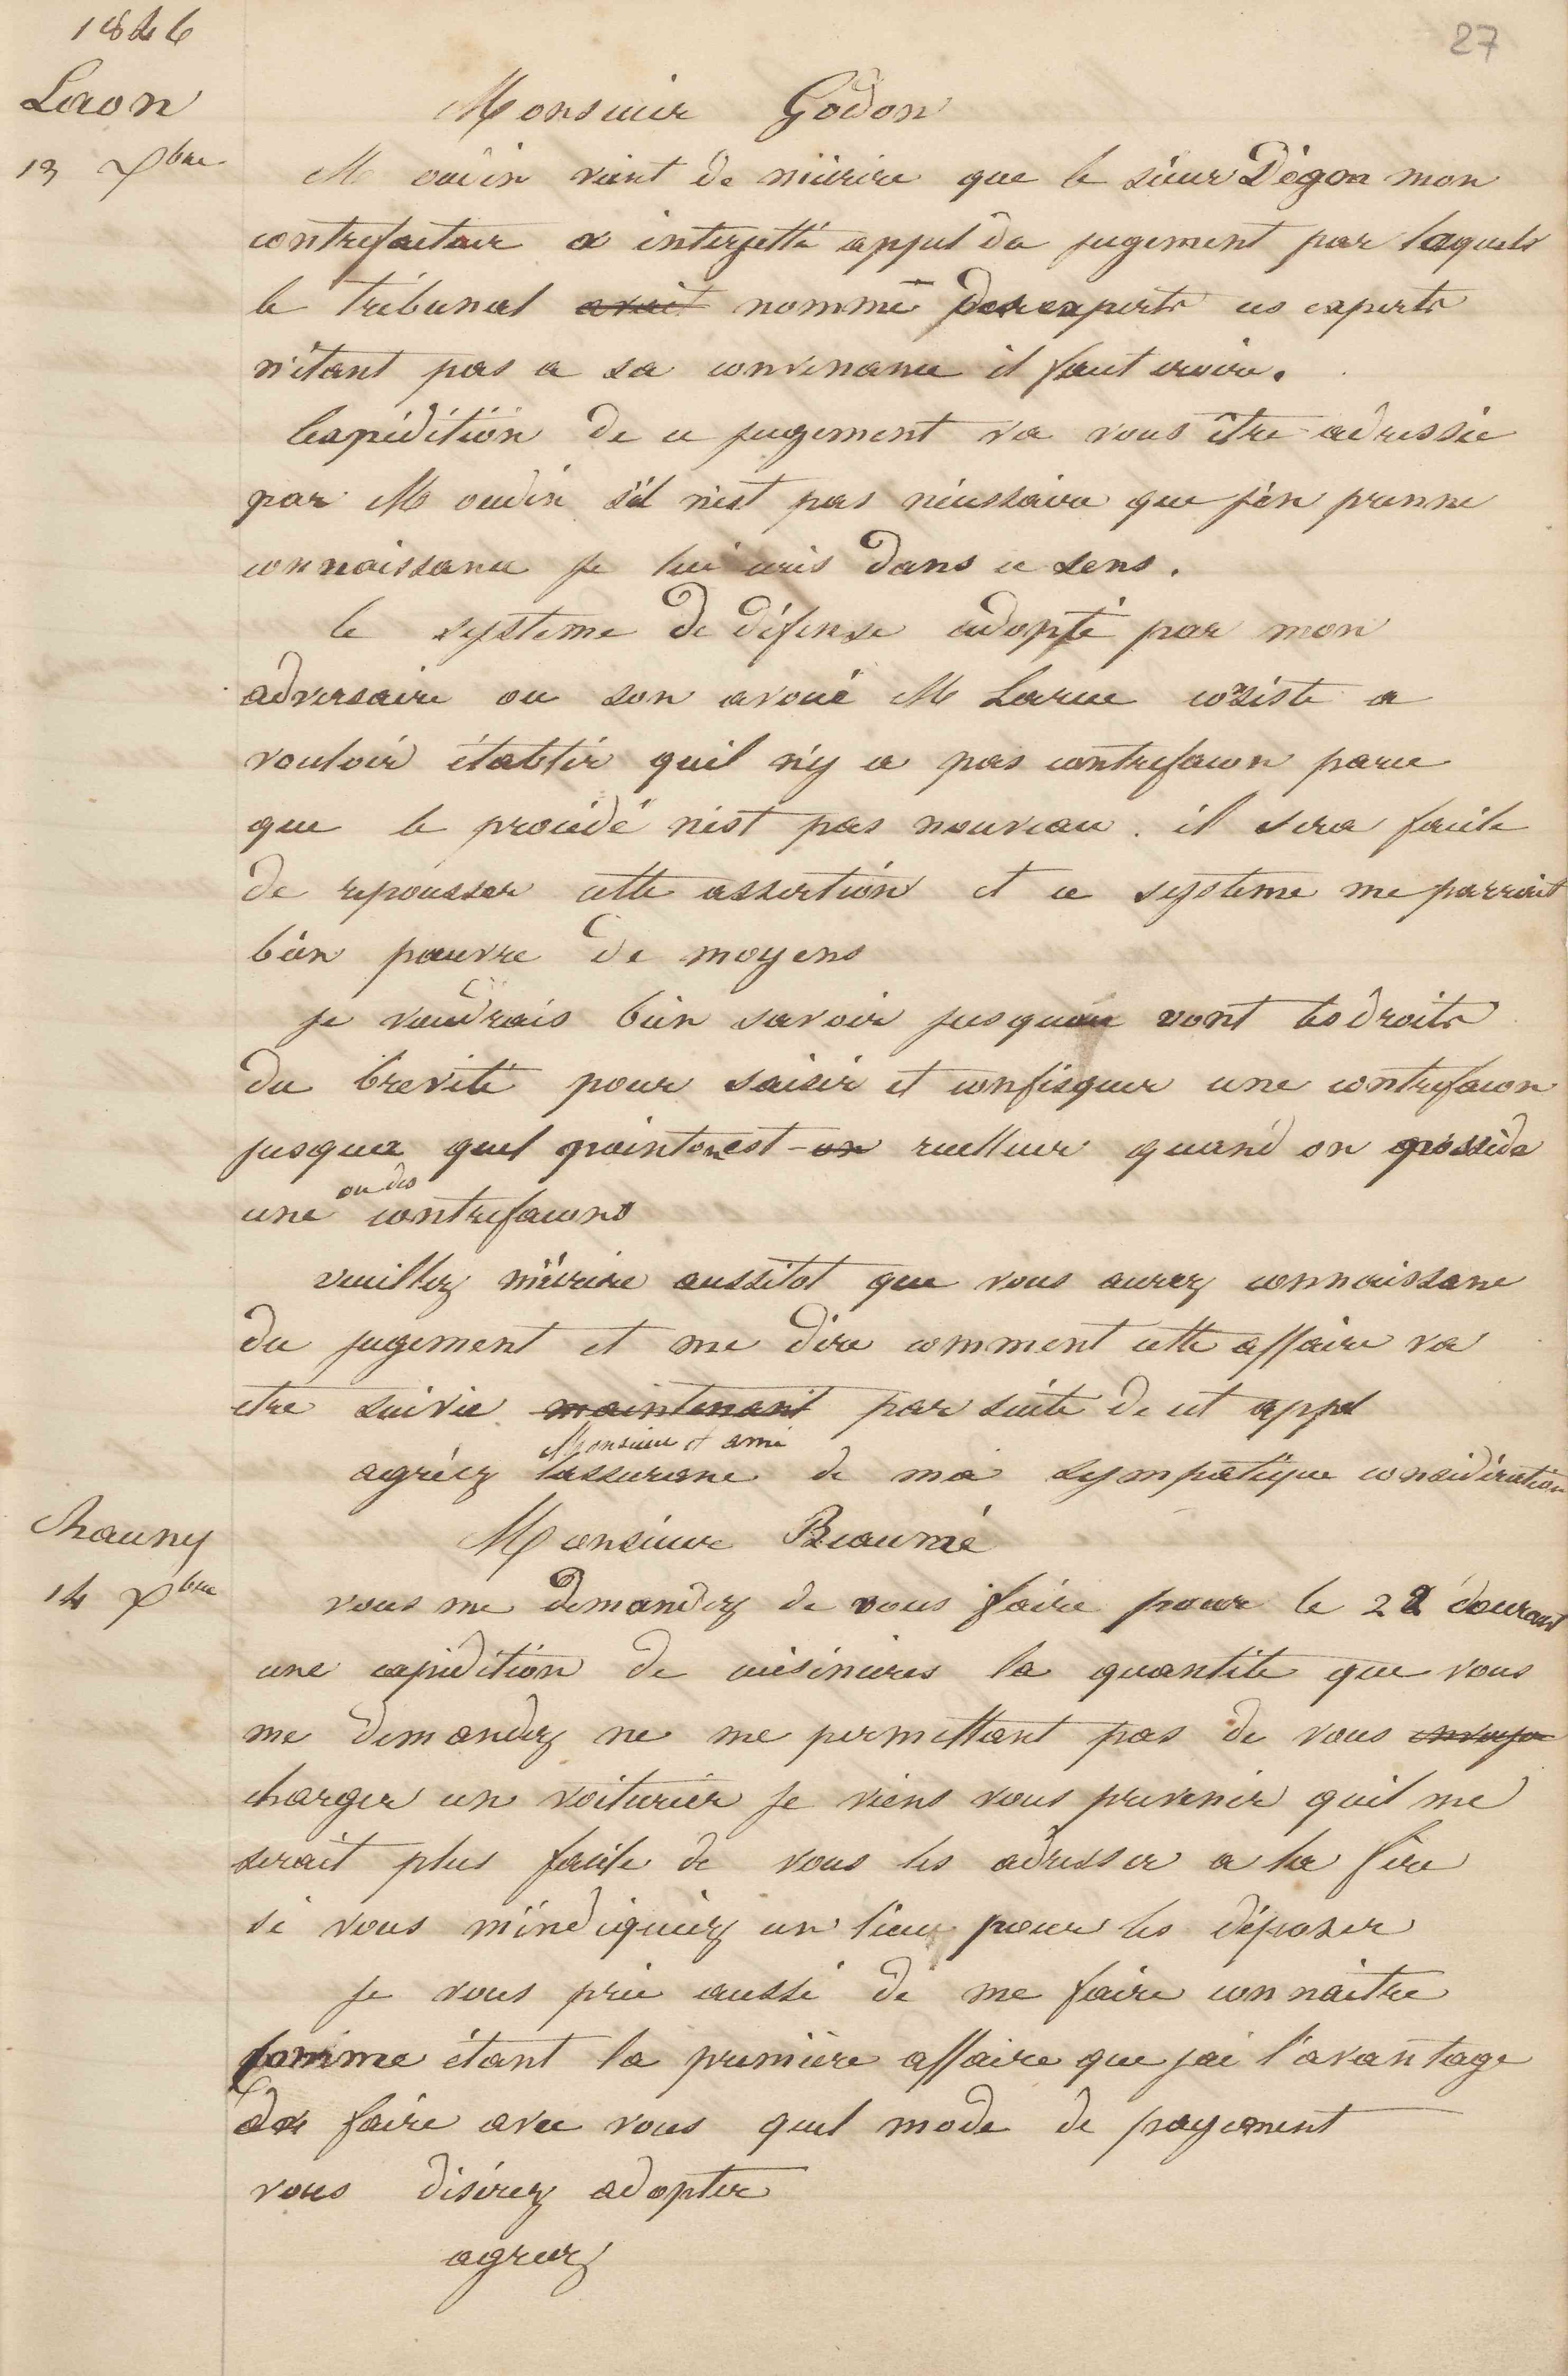 1846
27
Laon
Monsieur Godon
13 Xbre
M oudin vient de m'écrire que le sieur Dégon mon
contrefacteur a interjetté appel du jugement par lequels
le tribunal avait nommé des experts ces experts
n'étant pas a sa convenance il faut croire.
l'expédition de ce jugement va vous être adressée
par M oudin s'il n'est pas nécessaire que j'en prenne
connaissance je lui écris dans ce sens.
le systeme de défense adopté par mon
adversaire ou son avoué M Larue consiste a
vouloir établir quil n'y a pas contrefacon parce
que le procédé n'est pas nouveau. il sera facile
de repousser cette assertion et ce systeme me parrait
bien pauvre de moyens
je voudrais bien savoir jusquou vont les droits
du breveté pour saisir et confisquer une contrefacon
jusqua quel point on est on recelleur quand on possède
une ou des contrefacons
veuillez m'écrire aussitot que vous aurez connaissance
du jugement et me dire comment cette affaire va
etre suivie maintenant par suite de cet appel
agréez Monsieur et ami lassurance de ma sympatique considération
Chauny
Monsieur Beaumé
14 Xbre
vous me demandez de vous faire pour le 22 courant
une expédition de cuisinieres la quantite que vous
me demandez ne me permettant pas de vous envoye
charger un voiturier je viens vous prevenir quil me
serait plus facile de vous les adresser a la fere
si vous m'indiquiez un lieu pour les déposer
je vous prie aussi de me faire connaitre
comme étant la première affaire que jai l'avantage
de faire avec vous quel mode de payement
vous désirez adopter
agreez